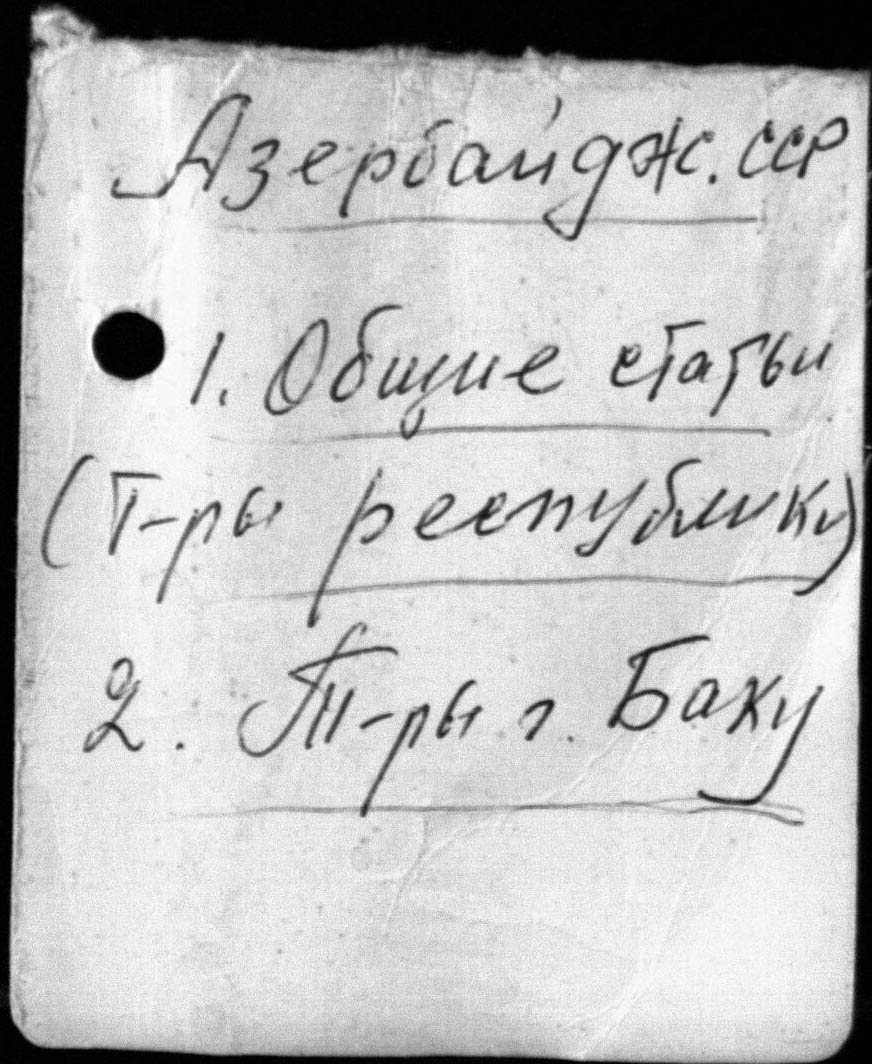 Азербайдж. ССР
1. Общие статьи
(Т-ры республики)
2. Т-ры г. Баку